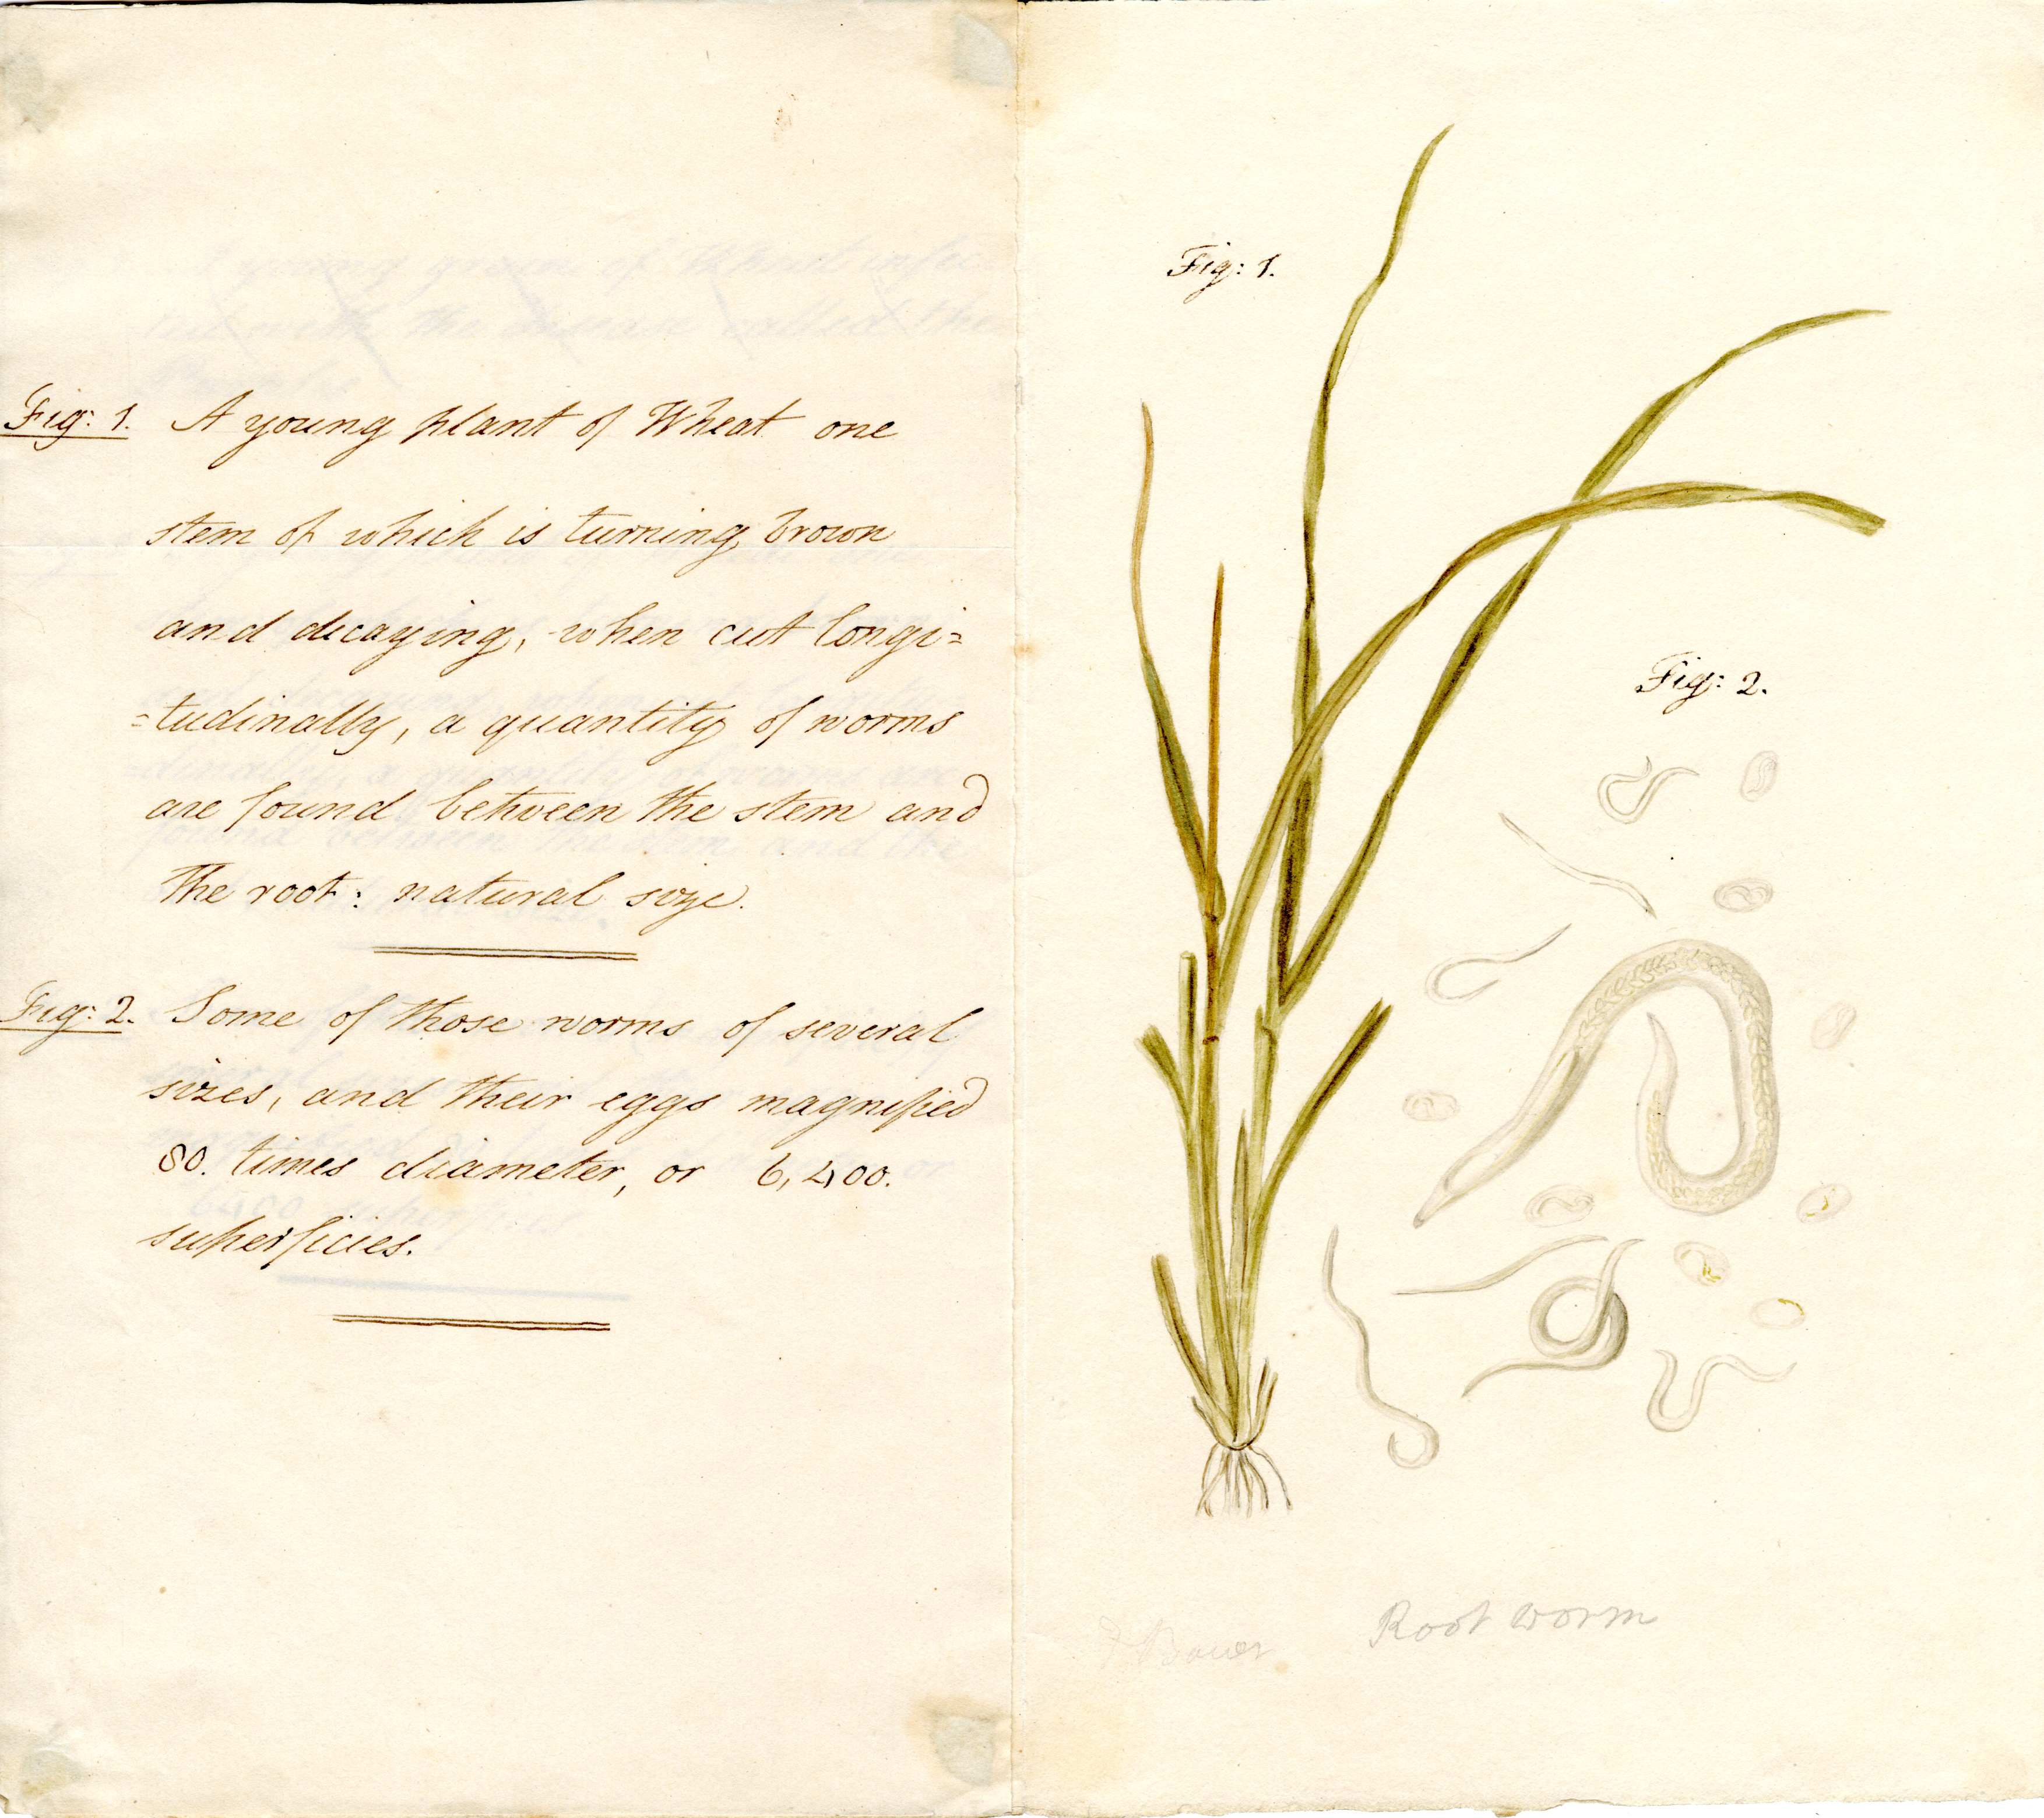 Fig: 1. A young plant of Wheat one
stem of which is turning brown
and decaying, when cut longi=
=tudinally, a quantity of worms
are found between the stem and
the root: natural size.
Fig: 2. Some of those worms of several
sizes, and their eggs magnified
80. times diameter, or 6,400.
superficies.
Fig: 1.
Fig: 2.
Root worm
Bauer